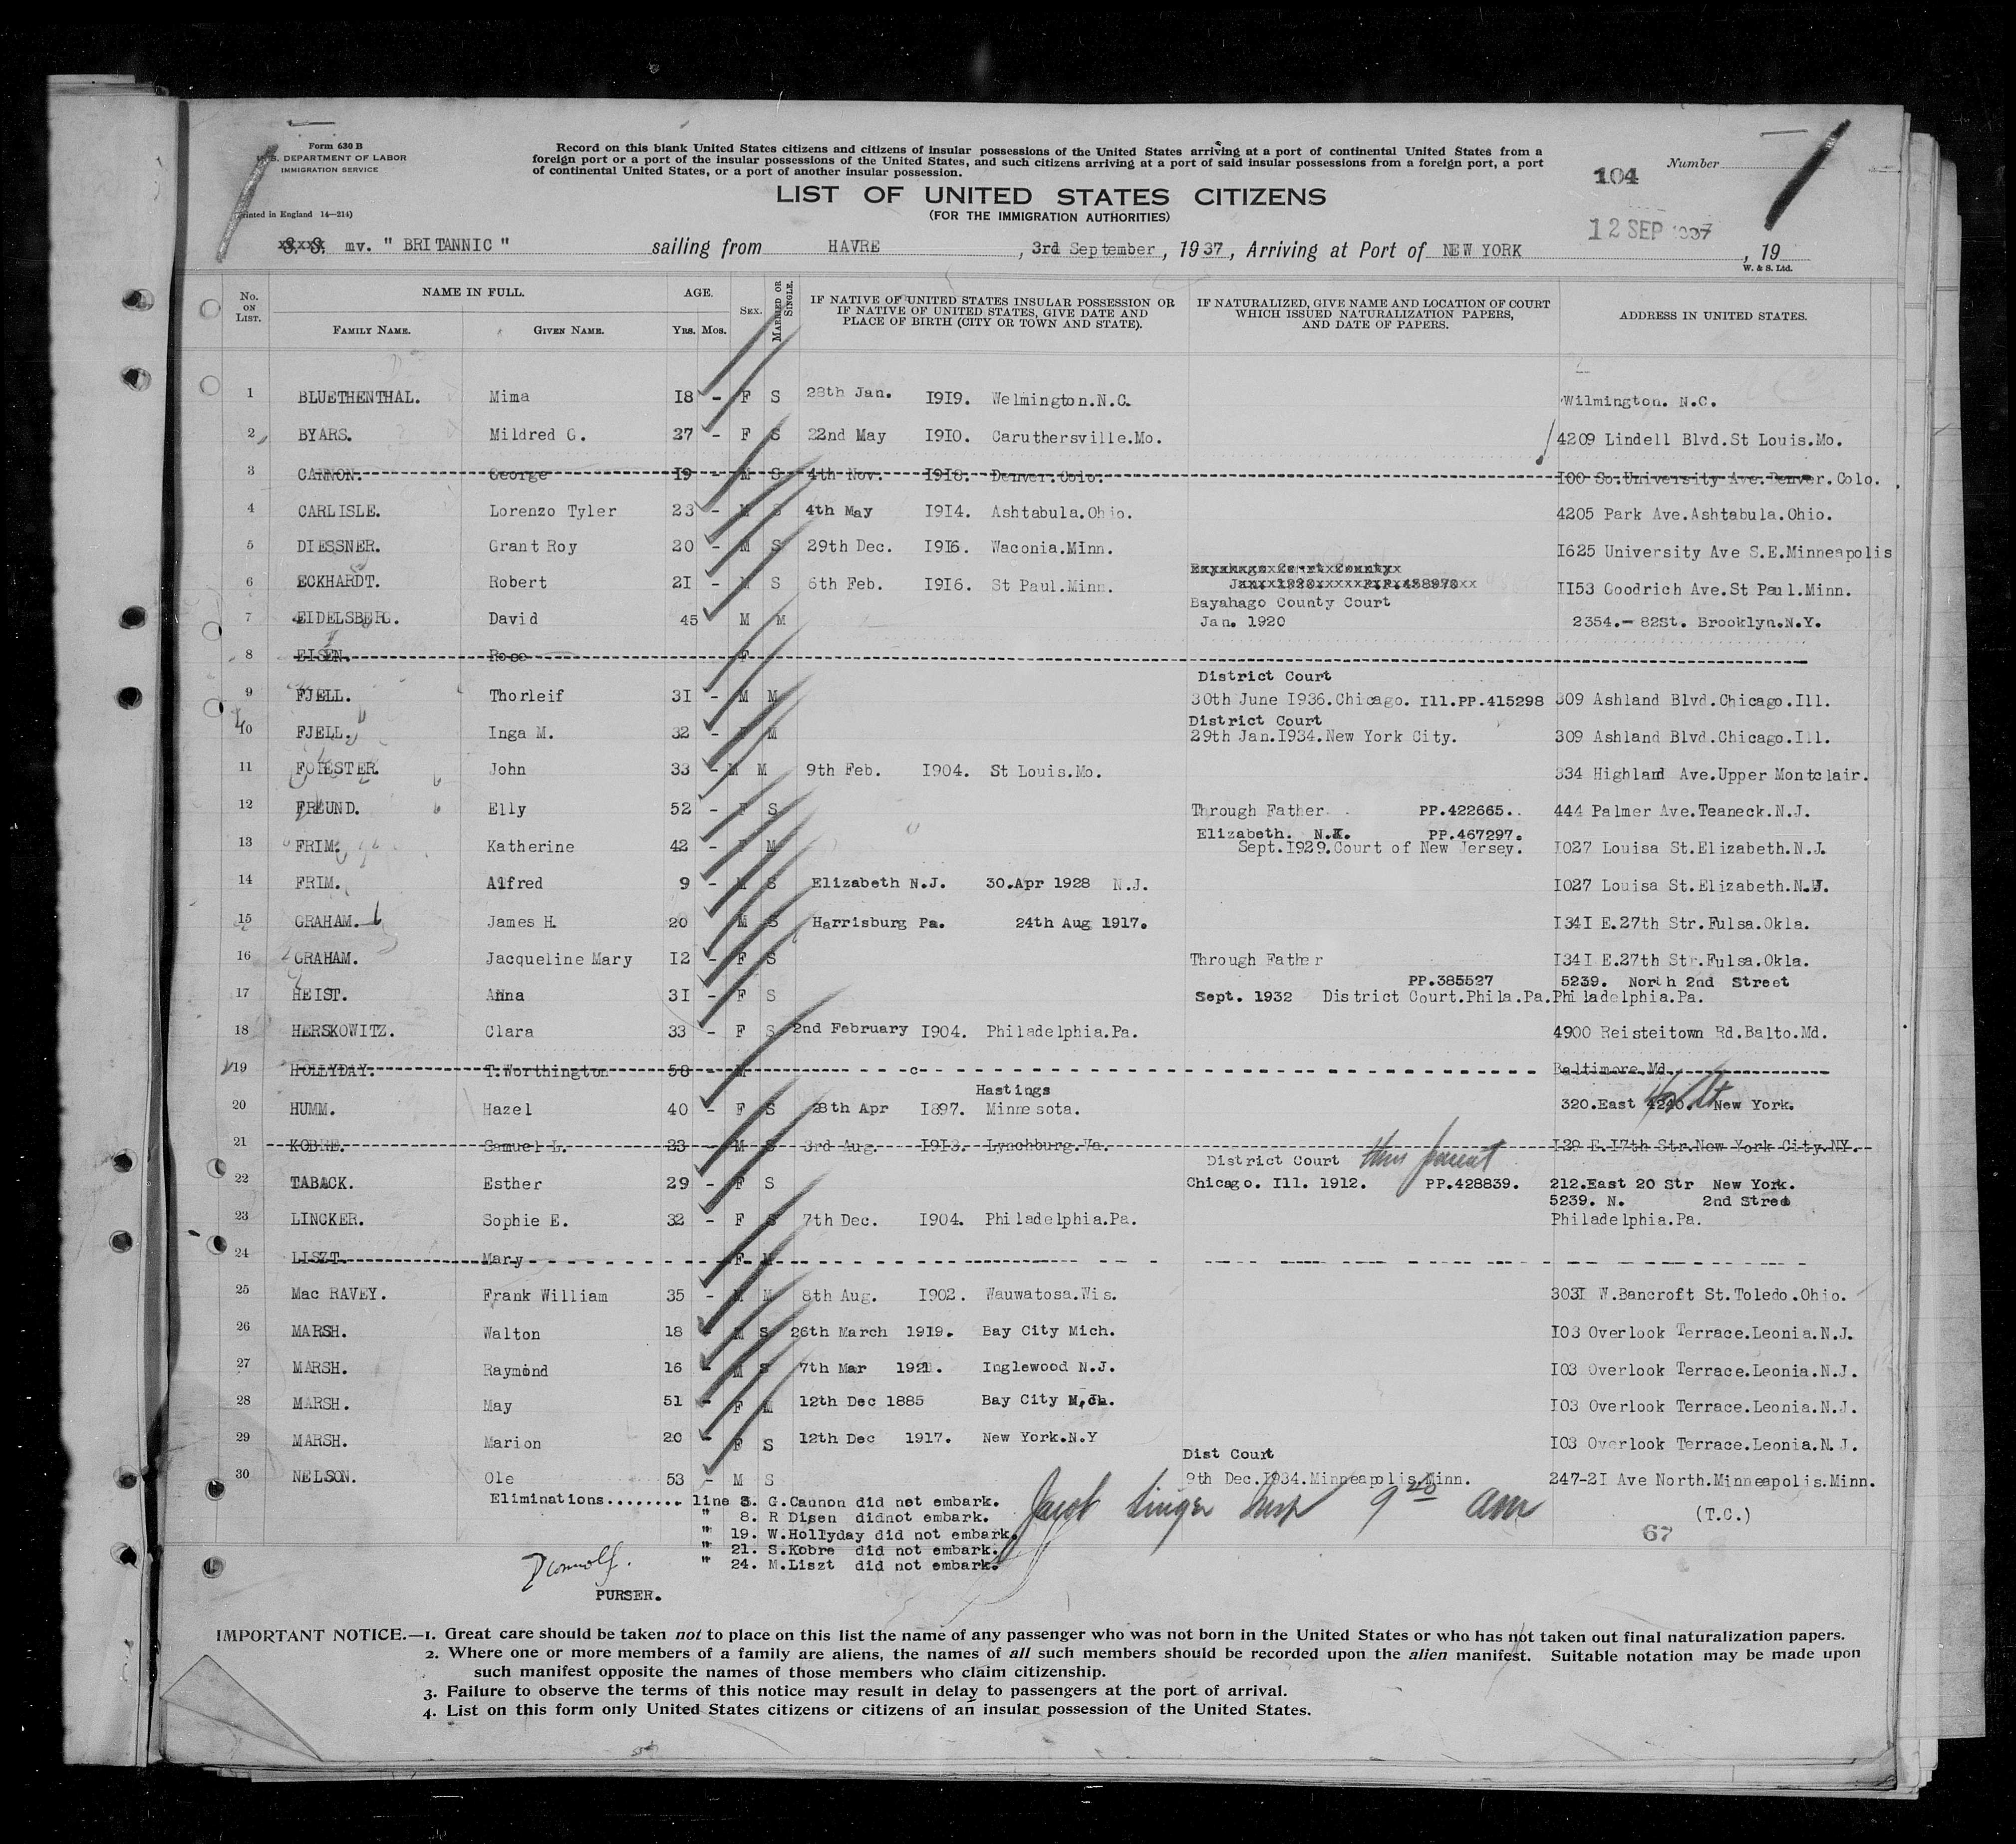 Form 630 B
U. S. DEPARTMENT OF LABOR
IMMIGRATION SERVICE
Printed in England 14—214)
Record on this blank United States citizens and citizens of insular possessions of the United States arriving at a port of continental United States from a
foreign port or a port of the insular possessions of the United States, and such citizens arriving at a port of said insular possessions from a foreign port, a port
of continental United States, or a port of another insular possession.
LIST OF UNITED STATES CITIZENS
(FOR THE IMMIGRATION AUTHORITIES)
104
Number
12 SEP 1937
S. S. mv. " BRITANNIC " sailing from HAVRE , 3rd September , 1937 , Arriving at Port of NEW YORK , 19
W. & S. Ltd.
No. ON LIST. NAME IN FULL. AGE. SEX. MARRIED OR SINGLE. IF NATIVE OF UNITED STATES INSULAR POSSESSION OR IF NATIVE OF UNITED STATES, GIVE DATE AND PLACE OF BIRTH (CITY OR TOWN AND STATE). IF NATURALIZED, GIVE NAME AND LOCATION OF COURT WHICH ISSUED NATURALIZATION PAPERS, AND DATE OF PAPERS. ADDRESS IN UNITED STATES.
FAMILY NAME. GIVEN NAME. YRS. MOS.
1 BLUETHENTHAL. Mima 18 - F S 28th Jan. 1919. Welmington.N.C. Wilmington. N.C.
2 BYARS. Mildred G. 27 - F S 22nd May 1910. Caruthersville.Mo. 4209 Lindell Blvd.St Louis.Mo.
3 CANNON. George 19 - M S 4th Nov. 1918. Denver.Colo. 100 So.University Ave.Denver.Colo.
4 CARLISLE. Lorenzo Tyler 23 - M S 4th May 1914. Ashtabula.Ohio. 4205 Park Ave.Ashtabula.Ohio.
5 DIESSNER. Grant Roy 20 - M S 29th Dec. 1916. Waconia.Minn. 1625 University Ave S.E.Minneapolis
Bayahago Court County
Jan. 1920 P.P.458970
6 ECKHARDT. Robert 21 - M S 6th Feb. 1916. St Paul.Minn. 1153 Goodrich Ave.St Paul.Minn.
Bayahago County Court
7 EIDELSBERG. David 45 M M Jan. 1920 2354.- 82St. Brooklyn.N.Y.
8 EISEN. Rose F
District Court
9 FJELL. Thorleif 31 - M M 30th June 1936.Chicago. Ill.PP.415298 309 Ashland Blvd.Chicago.Ill.
District Court
10 FJELL. Inga M. 32 - F M 29th Jan.1934.New York City. 309 Ashland Blvd.Chicago.Ill.
11 FORESTER. John 33 - M M 9th Feb. 1904. St Louis.Mo. 334 Highland Ave.Upper Montclair.
12 FREUND. Elly 52 - F S Through Father PP.422665. 444 Palmer Ave.Teaneck.N.J.
Elizabeth. N.J. PP.467297.
13 FRIM. Katherine 42 - F M Sept.1929.Court of New Jersey. 1027 Louisa St.Elizabeth.N.J.
14 FRIM. Alfred 9 - M S Elizabeth N.J. 30.Apr 1928 N.J. 1027 Louisa St.Elizabeth.N.J.
15 GRAHAM. James H. 20 M S Harrisburg Pa. 24th Aug 1917. 1341 E.27th Str.Fulsa.Okla.
16 GRAHAM. Jacqueline Mary 12 - F S Through Father 1341 E.27th Str.Fulsa.Okla.
PP.385527 5239. North 2nd Street
17 HEIST. Anna 31 - F S Sept. 1932 District Court.Phila.Pa. Philadelphia.Pa.
18 HERSKOWITZ. Clara 33 - F S 2nd February 1904. Philadelphia.Pa. 4900 Reisteitown Rd.Balto.Md.
19 HOLLYDAY. T.Worthington 58 - M Baltimore.Md.
Hastings
20 HUMM. Hazel 40 - F S 28th Apr 1897. Minnesota. 320.East 4240. New York.
21 KOBRE. Samuel L. 23 - M S 3rd Aug. 1913. Lynchburg.Va. 129 E.17th Str.New York City.NY.
District Court thru parent
22 TABACK. Esther 29 - F S Chicago. Ill. 1912. PP.428839. 212.East 20 Str New York.
5239. N. 2nd Street
23 LINCKER. Sophie E. 32 - F S 7th Dec. 1904. Philadelphia.Pa. Philadelphia.Pa.
24 LISZT. Mary F M
25 Mac RAVEY. Frank William 35 - M M 8th Aug. 1902. Wauwatosa.Wis. 3031 W.Bancroft St.Toledo.Ohio.
26 MARSH. Walton 18 - M S 26th March 1919. Bay City Mich. 103 Overlook Terrace.Leonia.N.J.
27 MARSH. Raymond 16 - M S 7th Mar 1921. Inglewood N.J. 103 Overlook Terrace.Leonia.N.J.
28 MARSH. May 51 - F M 12th Dec 1885 Bay City Mich. 103 Overlook Terrace.Leonia.N.J.
29 MARSH. Marion 20 - F S 12th Dec 1917. New York.N.Y 103 Overlook Terrace.Leonia.N.J.
Dist Court
30 NELSON. Ole 53 - M S 9th Dec.1934.Minneapolis.Minn. 247-21 Ave North.Minneapolis.Minn.
Eliminations........ line 3. G.Cannon did not embark.
" 8. R Disen didnot embark.
" 19. W.Hollyday did not embark.
" 21. S.Kobre did not embark.
" 24. M.Liszt did not embark.
Jacob Singer Insp 9 20 am
(T.C.)
67
PURSER.
IMPORTANT NOTICE.—1. Great care should be taken not to place on this list the name of any passenger who was not born in the United States or who has not taken out final naturalization papers.
2. Where one or more members of a family are aliens, the names of all such members should be recorded upon the alien manifest. Suitable notation may be made upon
such manifest opposite the names of those members who claim citizenship.
3. Failure to observe the terms of this notice may result in delay to passengers at the port of arrival.
4. List on this form only United States citizens or citizens of an insular possession of the United States.